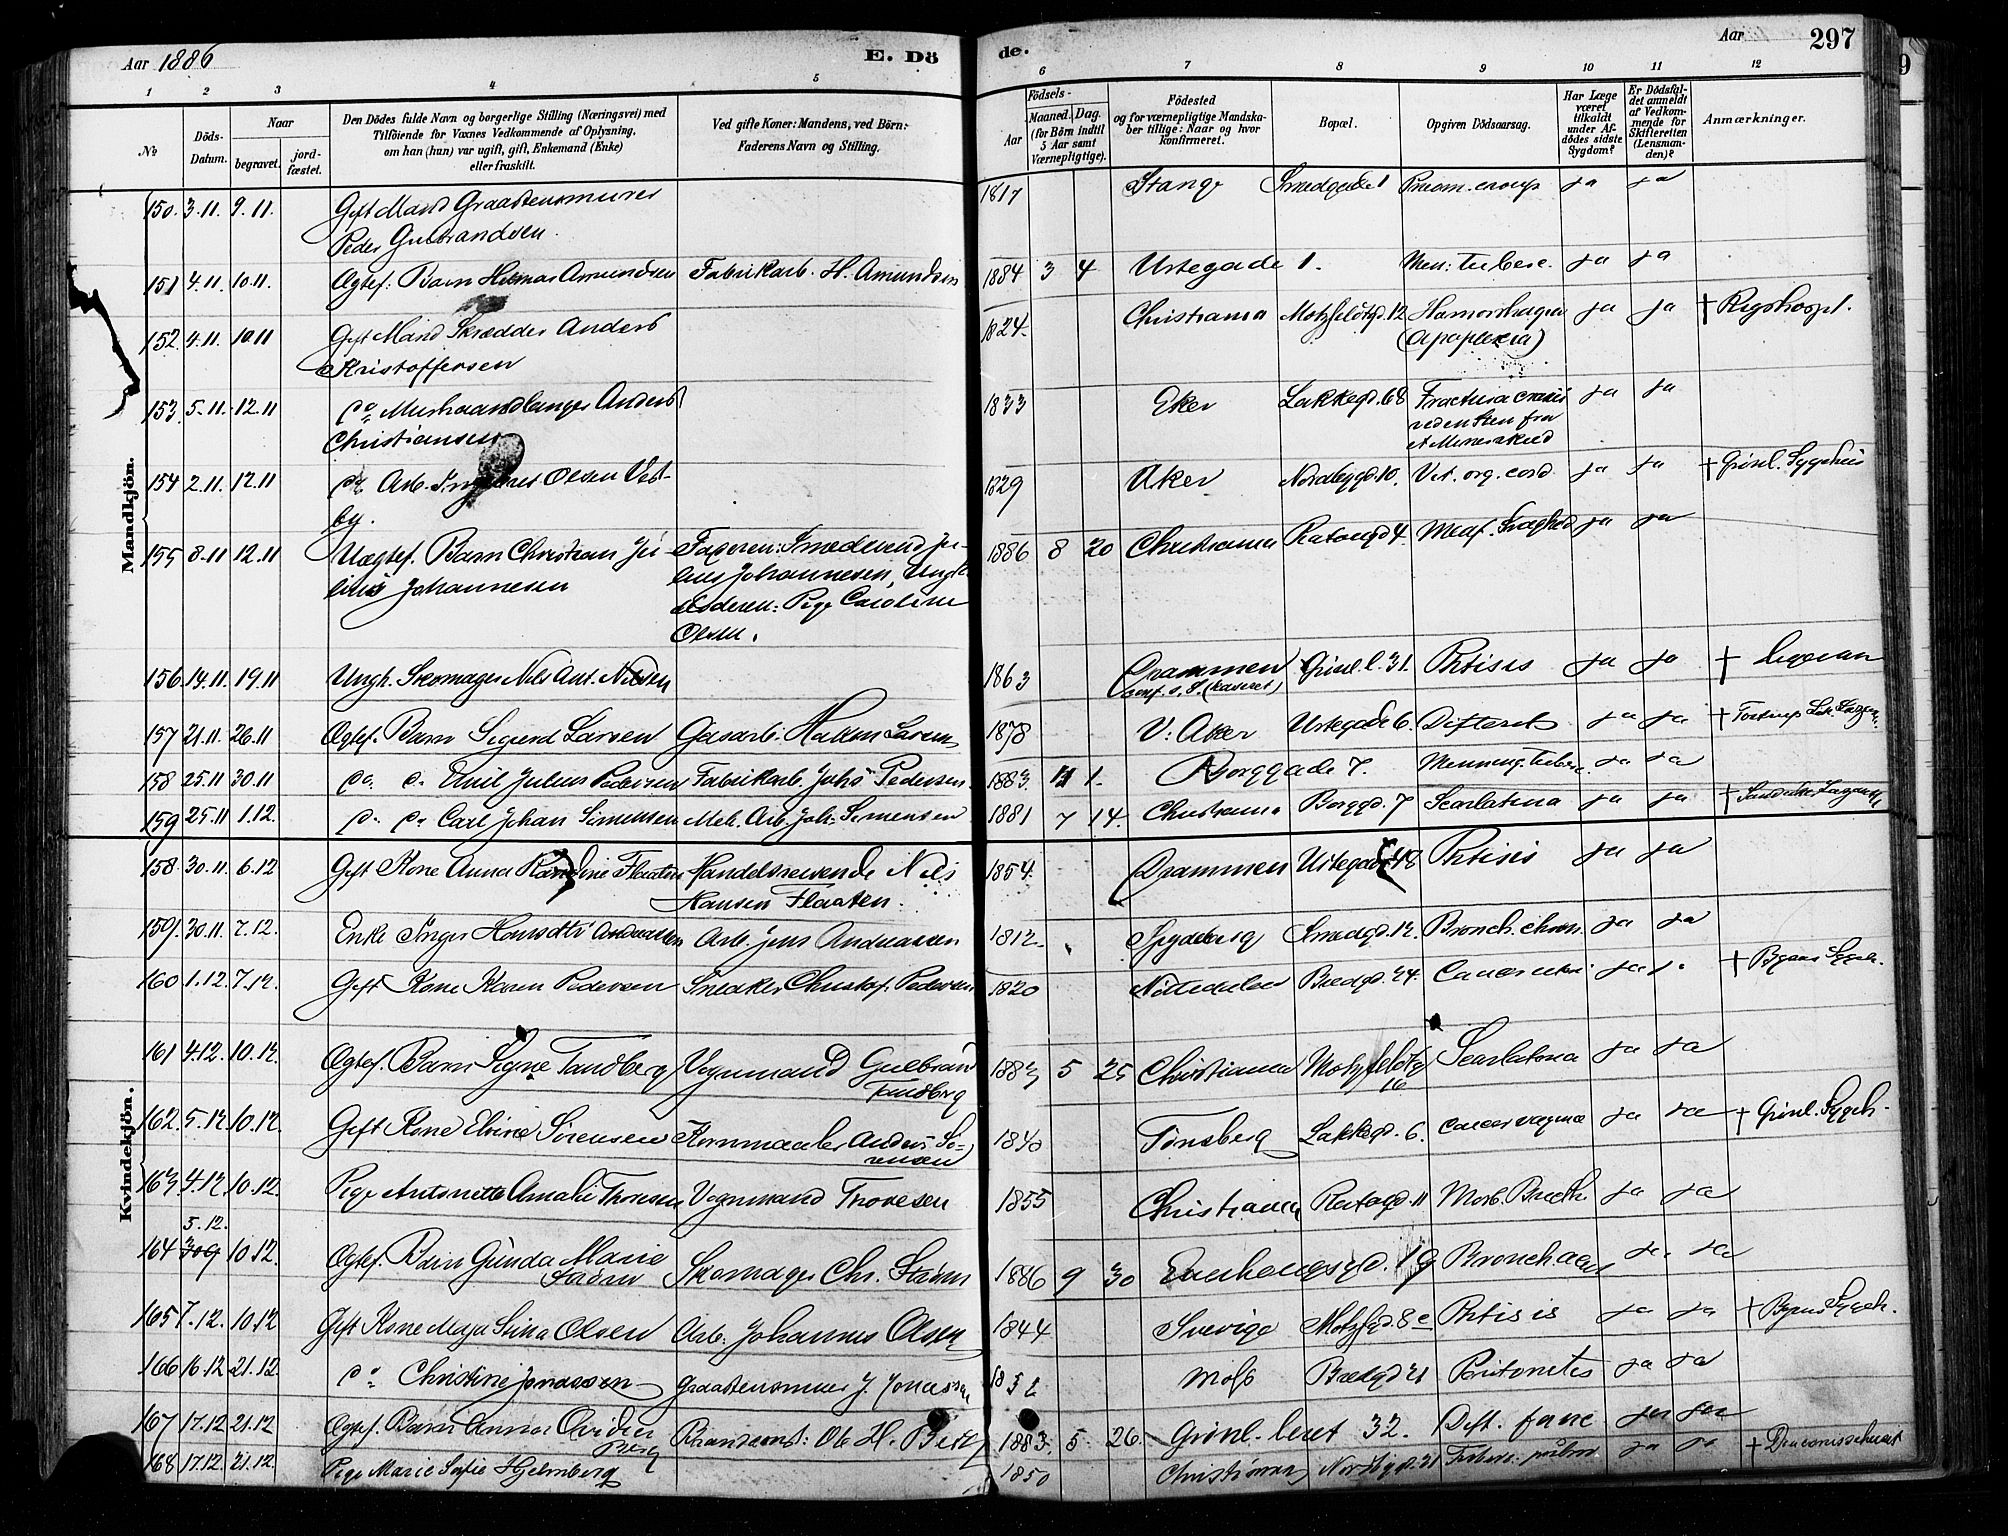 Aar 1886
E. Dö
de.
Aar
297
1 2 3 4 5 6 7 8 9 10 11 12
No
Döds-
Datum.
Naar
begravet.
jord-
fæstet.
Den Dödes fulde Navn og borgerlige Stilling (Næringsvei) med
Tilföiende for Voxnes Vedkommende af Oplysning,
om han (hun) var ugift, gift, Enkemand (Enke)
eller fraskilt.
Ved gifte Koner: Mandens, ved Börn:
Faderens Navn og Stilling.
Födsels-
Aar
Maaned. Dag.
(for Börn indtil
5 Aar samt
Værnepligtige).
Födested
og for værnepligtige Mandska-
ber tillige: Naar og hvor
konfirmeret.
Bopæl.
Opgiven Dödsaarsag.
Har Læge
været
tilkaldt
under Af-
dödes sidste
Sygdom?
Er Dödsfal-
det anmeldt
af Vedkom-
mende for
Skifteretten
(Lensman-
den)?
Anmærkninger.
Mandkjön.
150. 3.11. 9.11. Gift Mand Graastensmurer 1817 Stange Smedgade 1 Pneum. croup. ja ja
Peder Gulbrandsen.
151 4.11. 10.11. Ægtef. Barn Hilmar Amundsen Fabrikarb. H. Amundsen 1884 3 4 Urtegade 1. Men: tuberc. ja ja
152. 4.11. 10.11 Gift Mand Skrædder Anders 1824. Christiania Motzfeldtgd. 12 Hæmorrhagia ja ja † Rigshospit.
Kristoffersen (Apoplexia)
153. 5.11. 12.11 Do Murhaandlanger Anders 1833 Eker Lakkegd. 68 Fractura cranii ja ja
Christiansen ved en Sten fra
154 2.11. 12.11 Do Arb. Olsen Vest- 1829 Aker Nordbygd. 10. Vit. org. cord. ja ja † Grönl. Sygehus
by.
155 8.11 12.11 Uægtef. Barn Christian Ju- Faderen: Smedesvend Ju- 1886 8 20 Christiania Platougd. 4. Medf. Svaghed ja ja
lius Johannesen lius Johannesen, Ungk.
Moderen: Pige Caroline
Olsen.
156 14.11. 19.11 Ungk. Skomager Nils Ant. Nilsen 1863 Drammen Grönl. l. 31. Phtisis ja ja †
157 21.11. 26.11 Ægtef. Barn Sigurd Larsen Gasarb. Hakon Larsen 1878 V. Aker Urtegade 6. Difterit ja ja †
158 25.11 30.11 Do. Do Emil Julius Pedersen Fabrikarb. Johs Pedersen. 1883. 11 1. Borggade 7. Menning. Tuberc. ja ja
159 25.11 1.12. Do Do Carl Johan Simensen Mek. Arb. Joh. Simensen 1881 7 14. Christiania Borggd. 7 Scarlatina ja ja †
Kvindekjön.
158. 30.11. 6.12 Gift Kone Anna Randine Flaaten Handelsreisende Nils 1854. Drammen Urtegade 48 Phtisis ja ja
Hansen Flaaten.
159. 30.11. 7.12. Enke Inger Hansdtr Andreassen Arb. Jens Andreassen 1812. Spydeberg Smedgd. 12. Bronch. chron. ja ja
160 1.12. 7.12. Gift Kone Karen Pedersen Snedker Christof. Pedersen 1820 Nittedalen Bredgd. 24. Cancer uteri ja † Byens Sygeh.
161 4.12. 10.12. Ægtef. Barn Signe Tandberg Vognmand Gulbrand 1883 5 25 Christiania Motzfeldtg. Scarlatina ja ja
Tandberg 16
162. 5.12 10.12. Gift Kone Elvine Sörensen Kornmaaler Anders Sö- 1840 Tönsberg Lakkegd. 6. Cancer vaginæ ja ja † Grönl. Sygeh.
rensen
163 4.12 10.12. Pige Antonette Amalie Thoresen Vognmand Thoresen 1855 Christiania Platougd. 11 Morb. Brethi ja ja
3.12.
164 30.9 10.12. Ægtef. Barn Gunda Marie Skomager Chr. Störm 1886 9 30 Enerhougsgd. 19 Bronch. ja ja
165 7.12. 10.12 Gift Kone Maja Stina Olsen Arb. Johannes Olsen 1844 Sverige Motzfgd. 8c Phtisis ja ja † Byens Sygeh.
166 16.12 21.12 Do Christine Jonassen Graastensmurer J. Jonassen 1852 Moss Bredgd 21 Peritonitis ja ja
167 17.12 21.12 Ægtef. Barn Anna Ovidia Brandkonst: Ole H. Berg 1883. 5 26. Grönl. leret 32. Dift. fauc ja ja
Berg
168 17.12. 21.12 Pige Marie Sofie Hjelmberg 1850 Christiania Nordbygd. 31 Tuberc. pulm. ja ja † Diaconissehuset